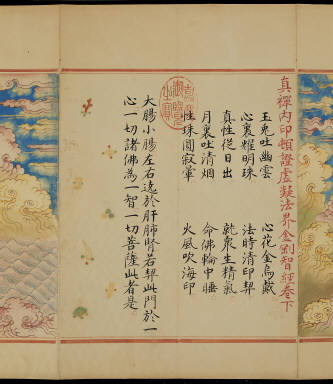 真禪內印頓證虛凝法界金剛智經卷下
玉兎吐幽雲　心花金烏藏
心裏耀明珠　法時清印契
真性從日出　乾衆生精氣
月裏吐清烟　命佛輪中睡
性珠圓寂軍　火風吹海印
大腸小腸左右遶於肝肺腎若契此門於一
心一切諸佛為一智一切菩薩此者是
嘉慶御覽之寶